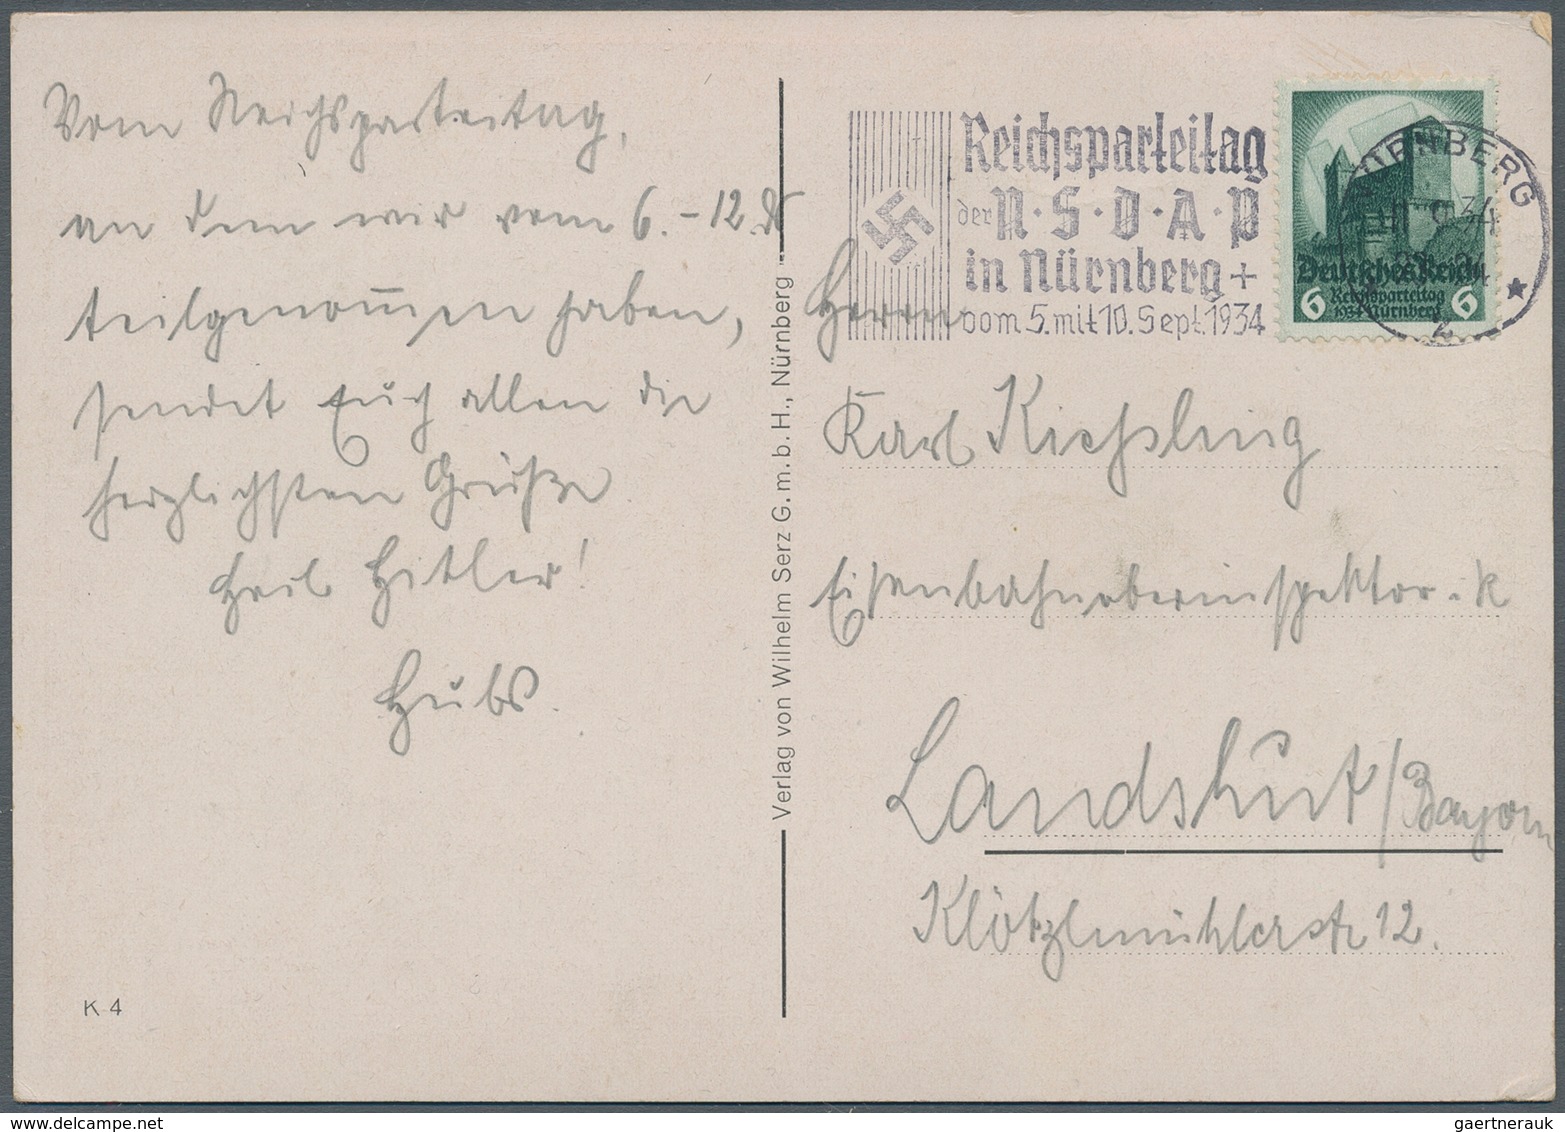 Vom Reichsparteitag,
an dem wir vom 6. – 12. ds
teilgenom̅en haben,
sendet Euch allen die
herzlichsten Grüße
Heil Hitler!
Hubs.
K 4
Verlag von Wilhelm Serz G.m.b.H., Nürnberg
Reichsparteitag
der N·S·D·A·P
in Nürnberg +
vom 5. mit 10. Sept. 1934
NÜRNBERG
9 34
2
Deutsches Reich
6 Reichsparteitag 6
1934 Nürnberg
Herrn
Karl Kießling
Eisenbahnoberinspektor i. R
Landshut / Bayern
Klötzlmühlerstr 12.
gaertnerauk